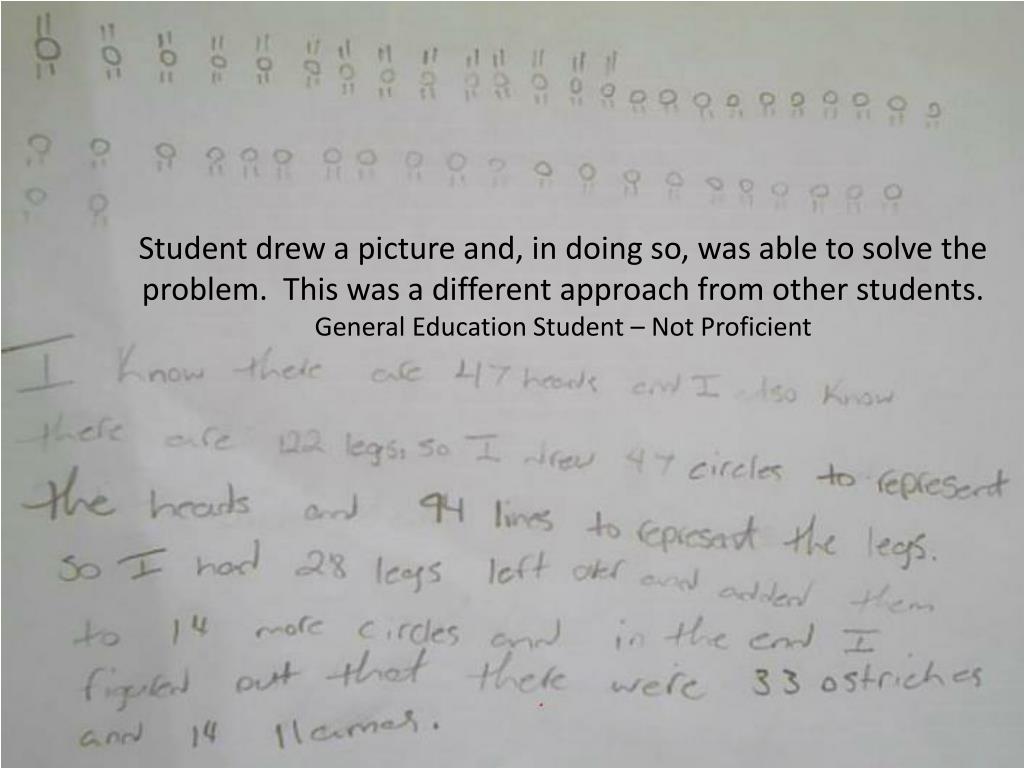 Student drew a picture and, in doing so, was able to solve the
problem. This was a different approach from other students.
General Education Student – Not Proficient
I know there are 47 heads and I also know
there are 122 legs, so I drew 47 circles to represent
the heads and 94 lines to represent the legs.
so I had 28 legs left over and added them
to 14 more circles and in the end I
figured out that there were 33 ostriches
and 14 llamas.